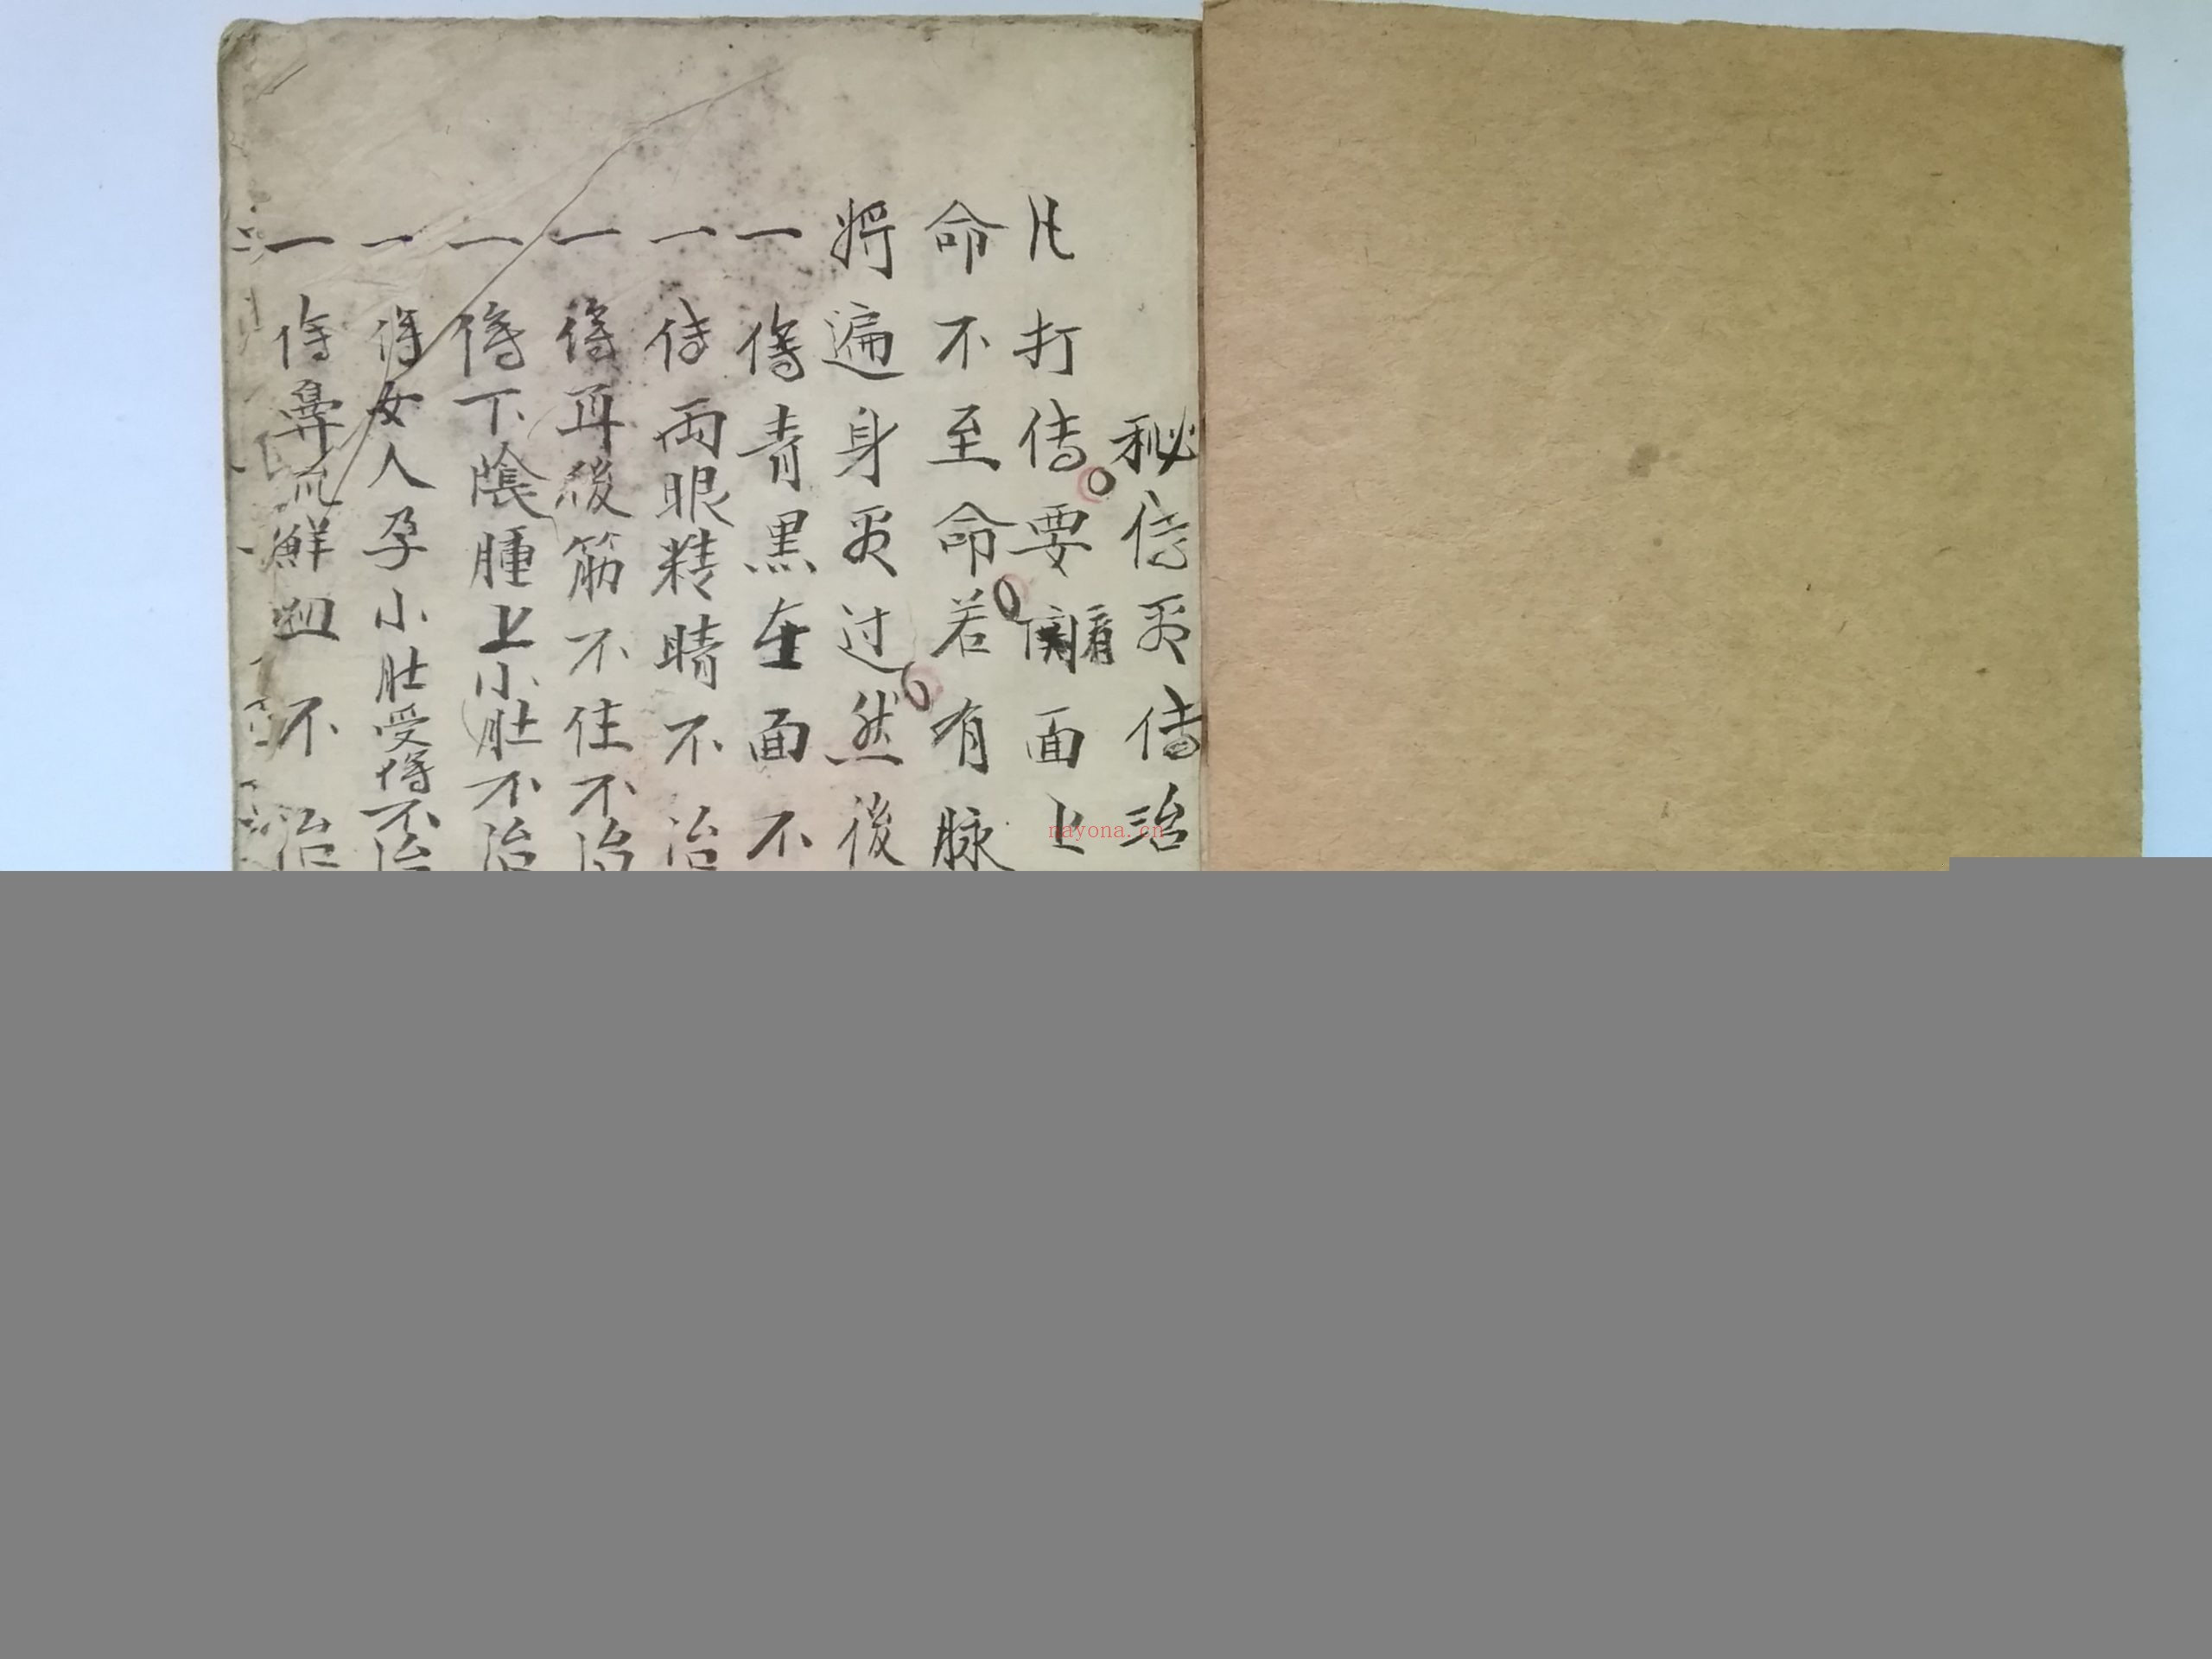 秘传受傷治
凡打傷要看面上
命不至命若有脉
將遍身受过然後
一傷青黑在面不
一傷兩眼精晴不治
一傷耳後筋不住不治
一傷下陰腫上小肚不治
一傷女人孕小肚受傷不治
一傷鼻流鮮血不治
nayona.cn